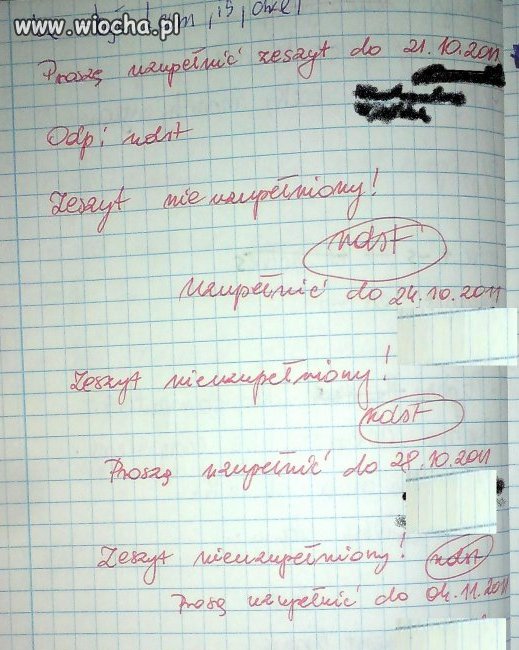 www.wiocha.pl
Proszę uzupełnić zeszyt do 21.10.2011
Odp: ndst
Zeszyt nieuzupełniony!
ndst
Uzupełnić do 24.10.2011
Zeszyt nieuzupełniony!
ndst
Proszę uzupełnić do 28.10.2011
Zeszyt nieuzupełniony! ndst
Proszę uzupełnić do 04.11.2011